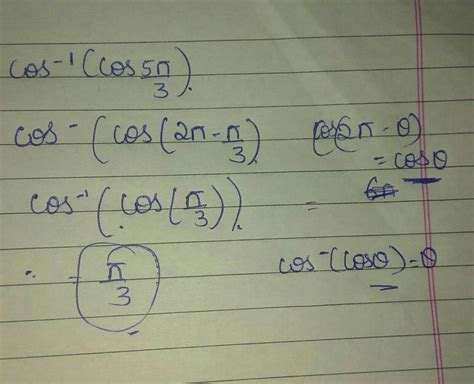 cos⁻¹(cos 5π/3).
cos⁻(cos(2π-π/3) cos(2π-θ)
= cosθ
cos⁻¹(cos(π/3)). =
∴ π/3 cos⁻(cosθ)=θ